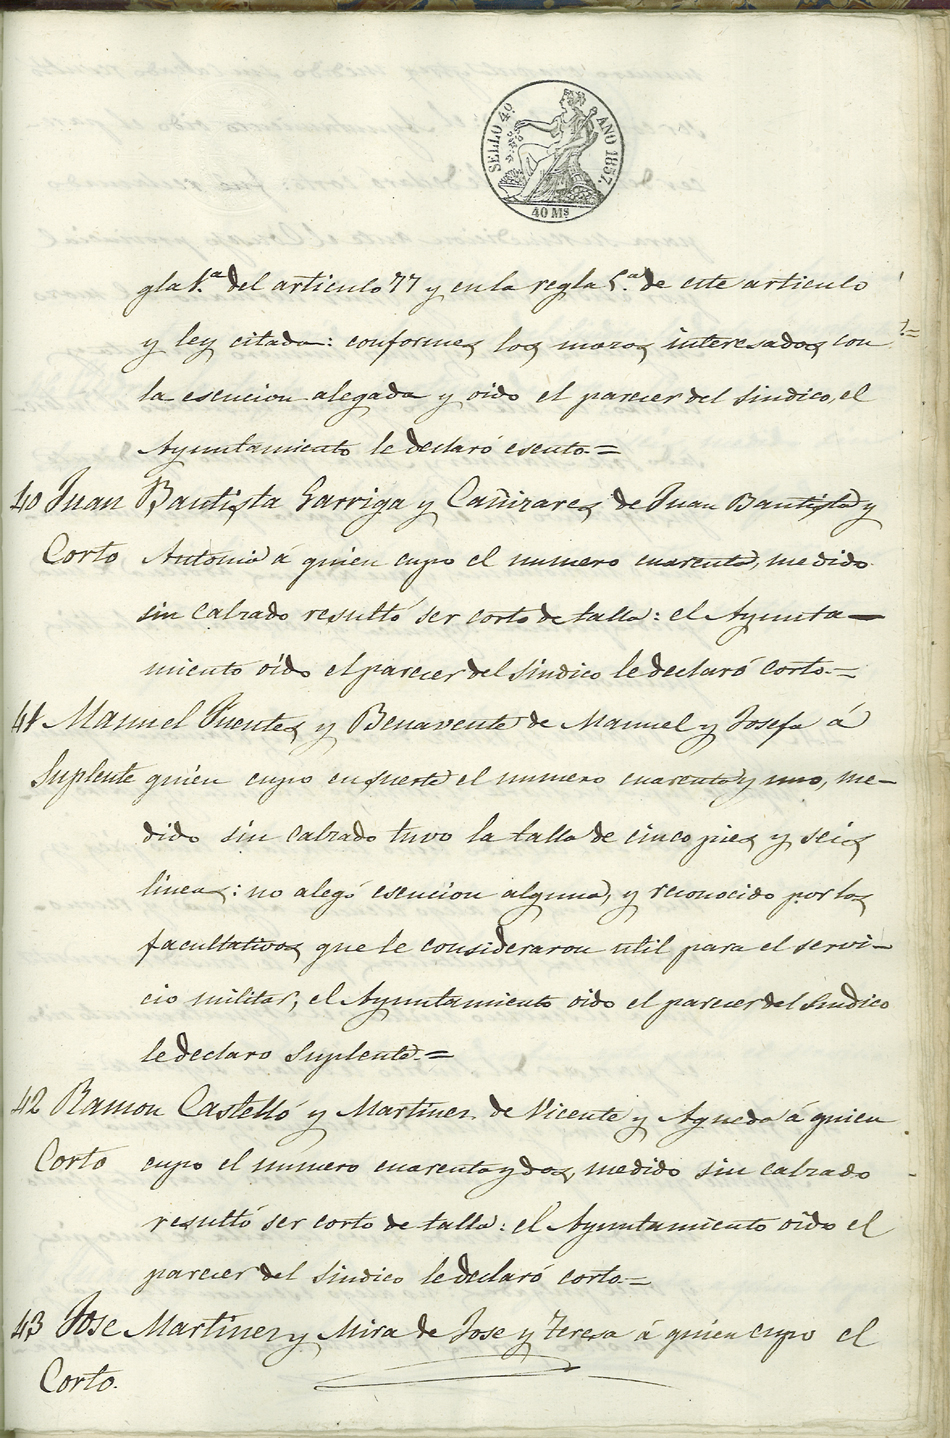 SELLO 4º AÑO 1857.
40 Ms
gla 1.ª del articulo 77 y en la regla 5.ª de este articulo
y ley citada: conformes los mozos interesados con
la esencion alegada y oido el parecer del Sindico, el
Ayuntamiento le declaró esento.=
40 Juan Bautista Garriga y Cañizares de Juan Bautista y
Corto Antonia á quien cupo el numero cuarenta, medido
sin calzado resultó ser corto de talla: el Ayunta-
miento oido el parecer del Sindico le declaró corto.=
41 Manuel Fuentes y Benavente de Manuel y Josefa á
Suplente quien cupo en suerte el numero cuarenta y uno, me-
dido sin calzado tuvo la talla de cinco pies y seis
lineas: no alegó esencion alguna, y reconocido por los
facultativos que le consideraron util para el servi-
cio militar, el Ayuntamiento oido el parecer del Sindico
le declaro Suplente.=
42 Ramon Castelló y Martinez de Vicente y Agueda á quien
Corto cupo el número cuarenta y dos, medido sin calzado
resultó ser corto de talla: el Ayuntamiento oido el
parecer del Sindico le declaró corto.=
43 Jose Martinez y Mira de Jose y Teresa á quien cupo el
Corto.